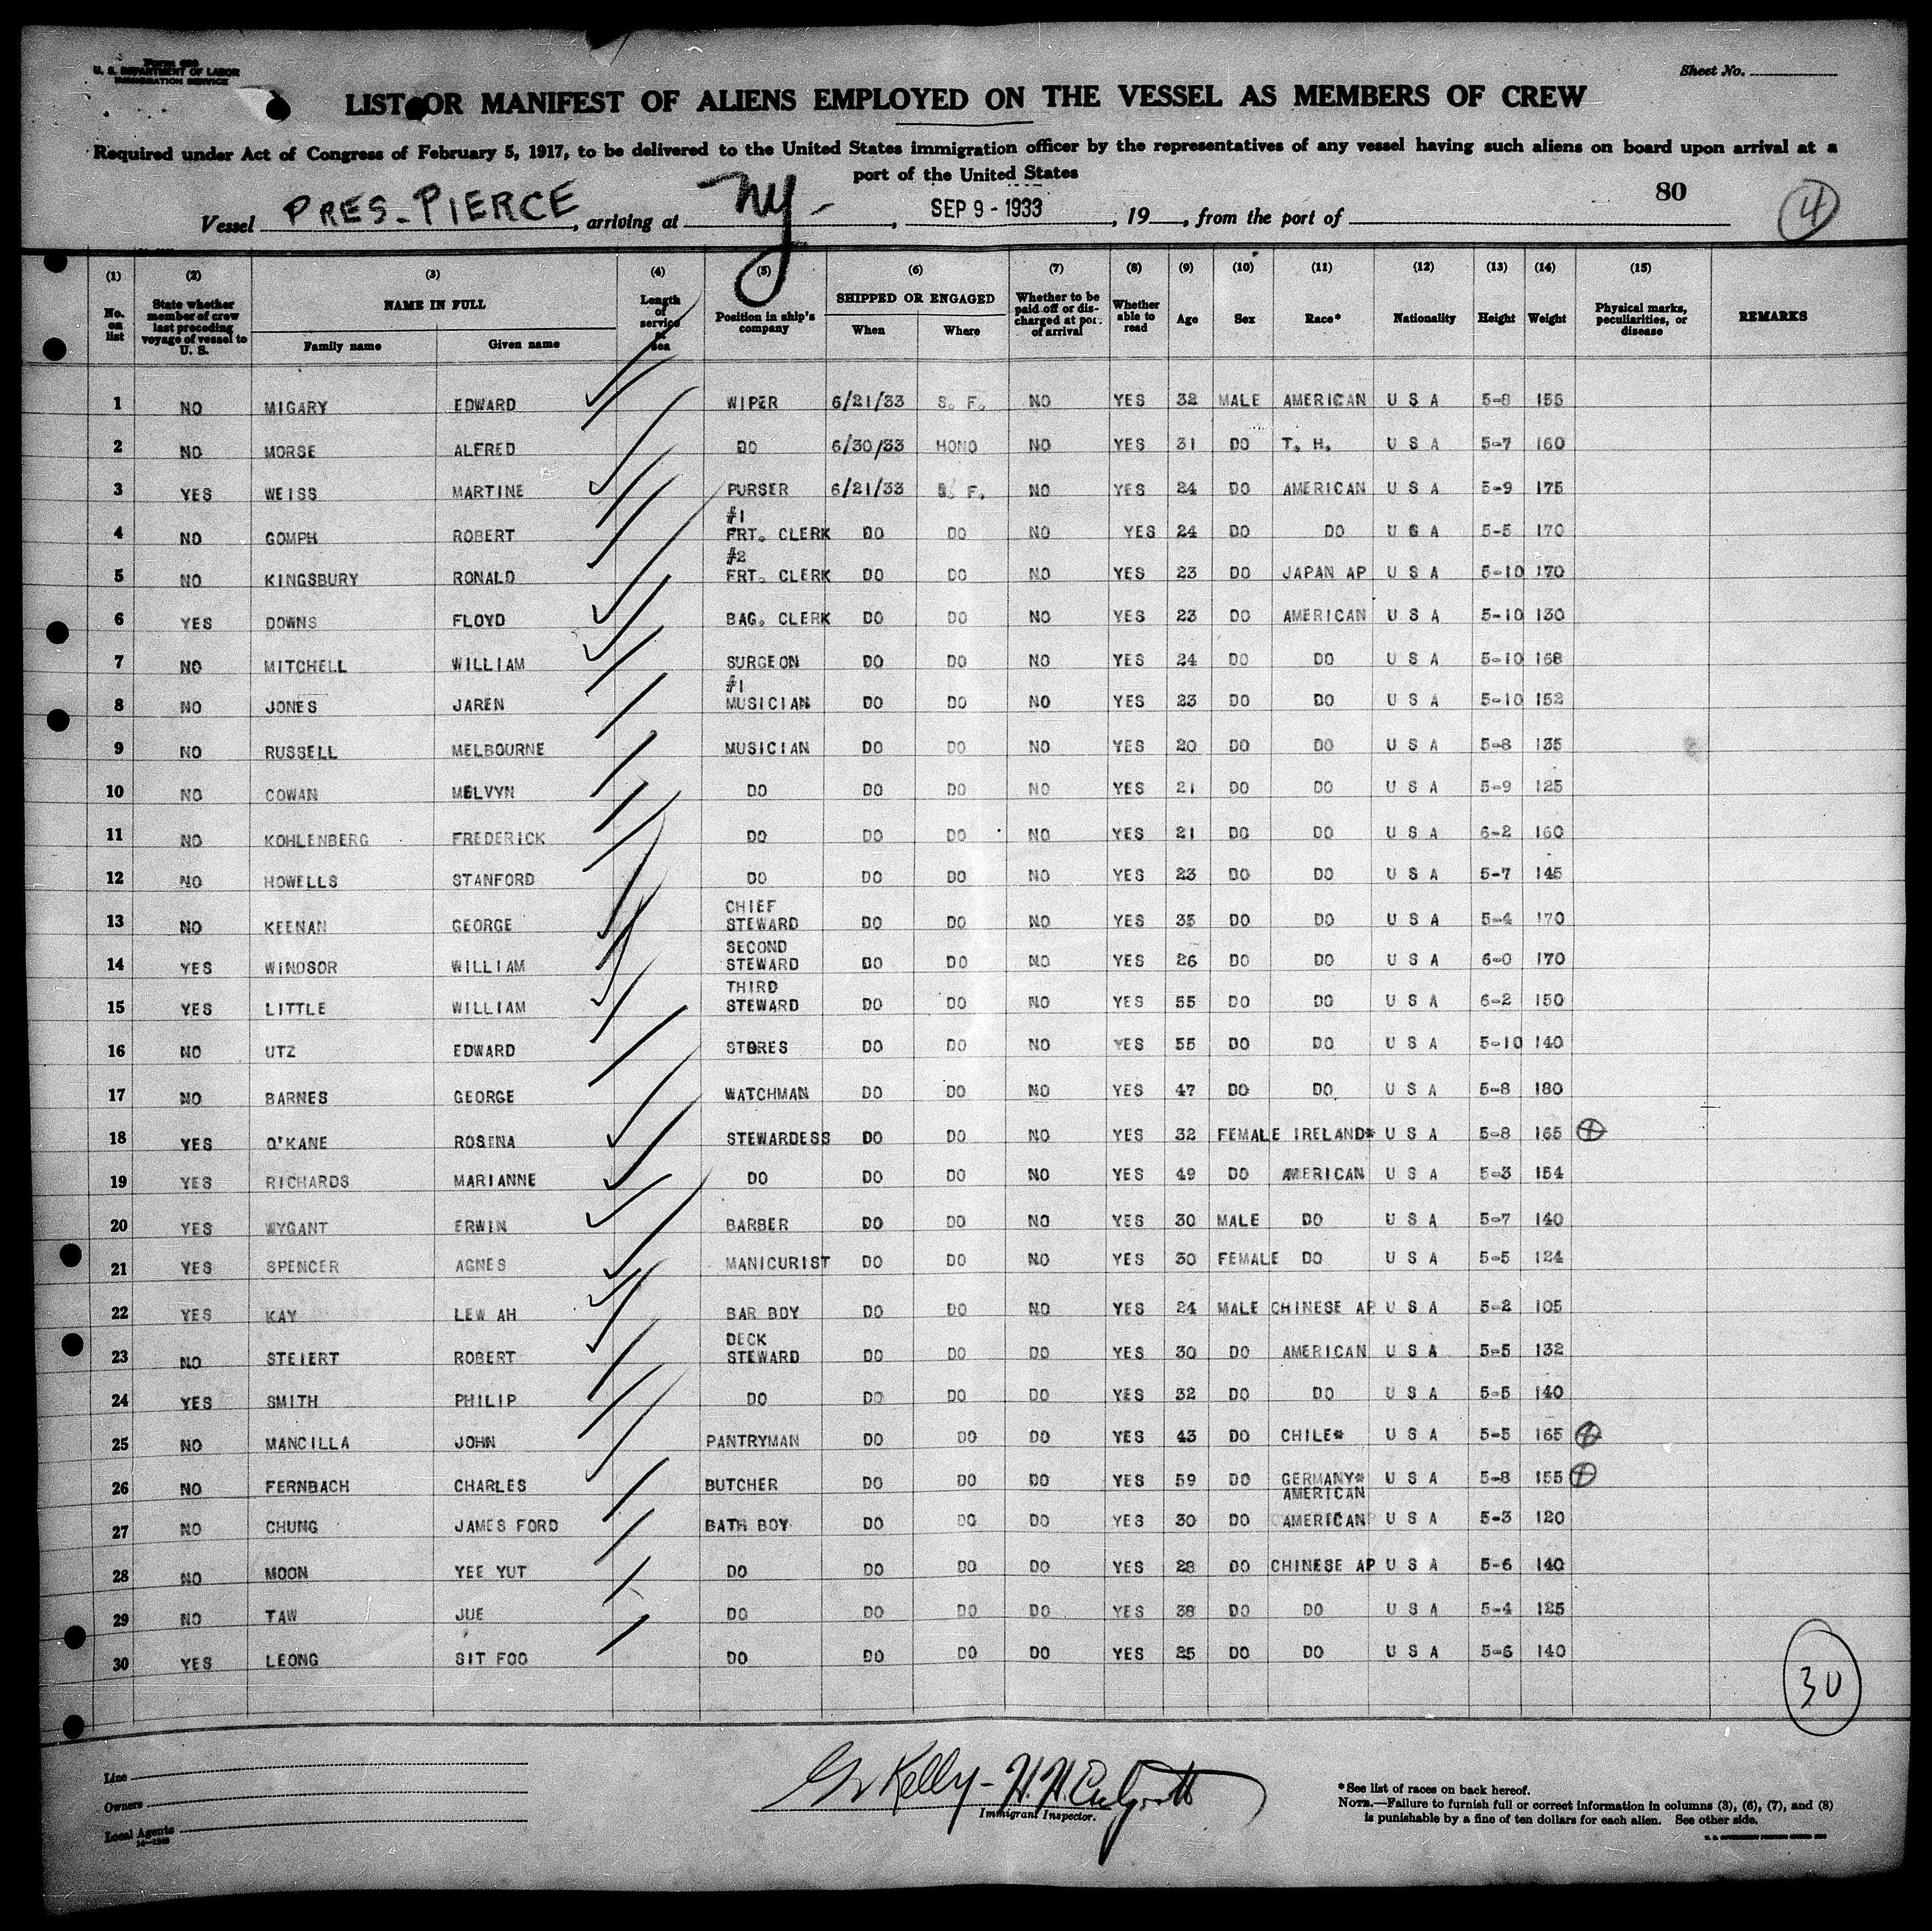 Form 680
U. S. DEPARTMENT OF LABOR
IMMIGRATION SERVICE
Sheet No.
LIST OR MANIFEST OF ALIENS EMPLOYED ON THE VESSEL AS MEMBERS OF CREW
Required under Act of Congress of February 5, 1917, to be delivered to the United States immigration officer by the representatives of any vessel having such aliens on board upon arrival at a
port of the United States
80
4
Vessel PRES. PIERCE, arriving at NY, SEP 9 - 1933, 19, from the port of
(1) (2) (3) (4) (5) (6) (7) (8) (9) (10) (11) (12) (13) (14) (15)
No. on list State whether member of crew last preceding voyage of vessel to U. S. NAME IN FULL Family name Given name Length of service at sea Position in ship's company SHIPPED OR ENGAGED When Where Whether to be paid off or discharged at port of arrival Whether able to read Age Sex Race* Nationality Height Weight Physical marks, peculiarities, or disease REMARKS
1 NO MIGARY EDWARD WIPER 6/21/33 S. F. NO YES 32 MALE AMERICAN U S A 5-8 155
2 NO MORSE ALFRED DO 6/30/33 HONO NO YES 31 DO T. H. U S A 5-7 160
3 YES WEISS MARTINE PURSER 6/21/33 S. F. NO YES 24 DO AMERICAN U S A 5-9 175
4 NO GOMPH ROBERT #1 FRT. CLERK DO DO NO YES 24 DO DO U S A 5-5 170
5 NO KINGSBURY RONALD #2 FRT. CLERK DO DO NO YES 23 DO JAPAN AP U S A 5-10 170
6 YES DOWNS FLOYD BAG. CLERK DO DO NO YES 23 DO AMERICAN U S A 5-10 130
7 NO MITCHELL WILLIAM SURGEON DO DO NO YES 24 DO DO U S A 5-10 168
8 NO JONES JAREN #1 MUSICIAN DO DO NO YES 23 DO DO U S A 5-10 152
9 NO RUSSELL MELBOURNE MUSICIAN DO DO NO YES 20 DO DO U S A 5-8 135
10 NO COWAN MELVYN DO DO DO NO YES 21 DO DO U S A 5-9 125
11 NO KOHLENBERG FREDERICK DO DO DO NO YES 21 DO DO U S A 6-2 160
12 NO HOWELLS STANFORD DO DO DO NO YES 23 DO DO U S A 5-7 145
13 NO KEENAN GEORGE CHIEF STEWARD DO DO NO YES 35 DO DO U S A 5-4 170
14 YES WINDSOR WILLIAM SECOND STEWARD DO DO NO YES 26 DO DO U S A 6-0 170
15 YES LITTLE WILLIAM THIRD STEWARD DO DO NO YES 55 DO DO U S A 6-2 150
16 NO UTZ EDWARD STORES DO DO NO YES 55 DO DO U S A 5-10 140
17 NO BARNES GEORGE WATCHMAN DO DO NO YES 47 DO DO U S A 5-8 180
18 YES O'KANE ROSINA STEWARDESS DO DO NO YES 32 FEMALE IRELAND* U S A 5-8 165
19 YES RICHARDS MARIANNE DO DO DO NO YES 49 DO AMERICAN U S A 5-3 154
20 YES WYGANT ERWIN BARBER DO DO NO YES 30 MALE DO U S A 5-7 140
21 YES SPENCER AGNES MANICURIST DO DO NO YES 30 FEMALE DO U S A 5-5 124
22 YES KAY LEW AH BAR BOY DO DO NO YES 24 MALE CHINESE AP U S A 5-2 105
23 NO STEIERT ROBERT DECK STEWARD DO DO DO YES 30 DO AMERICAN U S A 5-5 132
24 YES SMITH PHILIP DO DO DO DO YES 32 DO DO U S A 5-5 140
25 NO MANCILLA JOHN PANTRYMAN DO DO DO YES 43 DO CHILE* U S A 5-5 165
26 NO FERNBACH CHARLES BUTCHER DO DO DO YES 59 DO GERMANY* AMERICAN U S A 5-8 155
27 NO CHUNG JAMES FORD BATH BOY DO DO DO YES 30 DO AMERICAN U S A 5-3 120
28 NO MOON YEE YUT DO DO DO DO YES 28 DO CHINESE AP U S A 5-6 140
29 NO TAW JUE DO DO DO DO YES 38 DO DO U S A 5-4 125
30 YES LEONG SIT FOO DO DO DO DO YES 25 DO DO U S A 5-6 140
30
Line
Owners
Local Agents
Kelly - H. H.
Immigrant Inspector.
*See list of races on back hereof.
NOTE.—Failure to furnish full or correct information in columns (3), (6), (7), and (8)
is punishable by a fine of ten dollars for each alien. See other side.